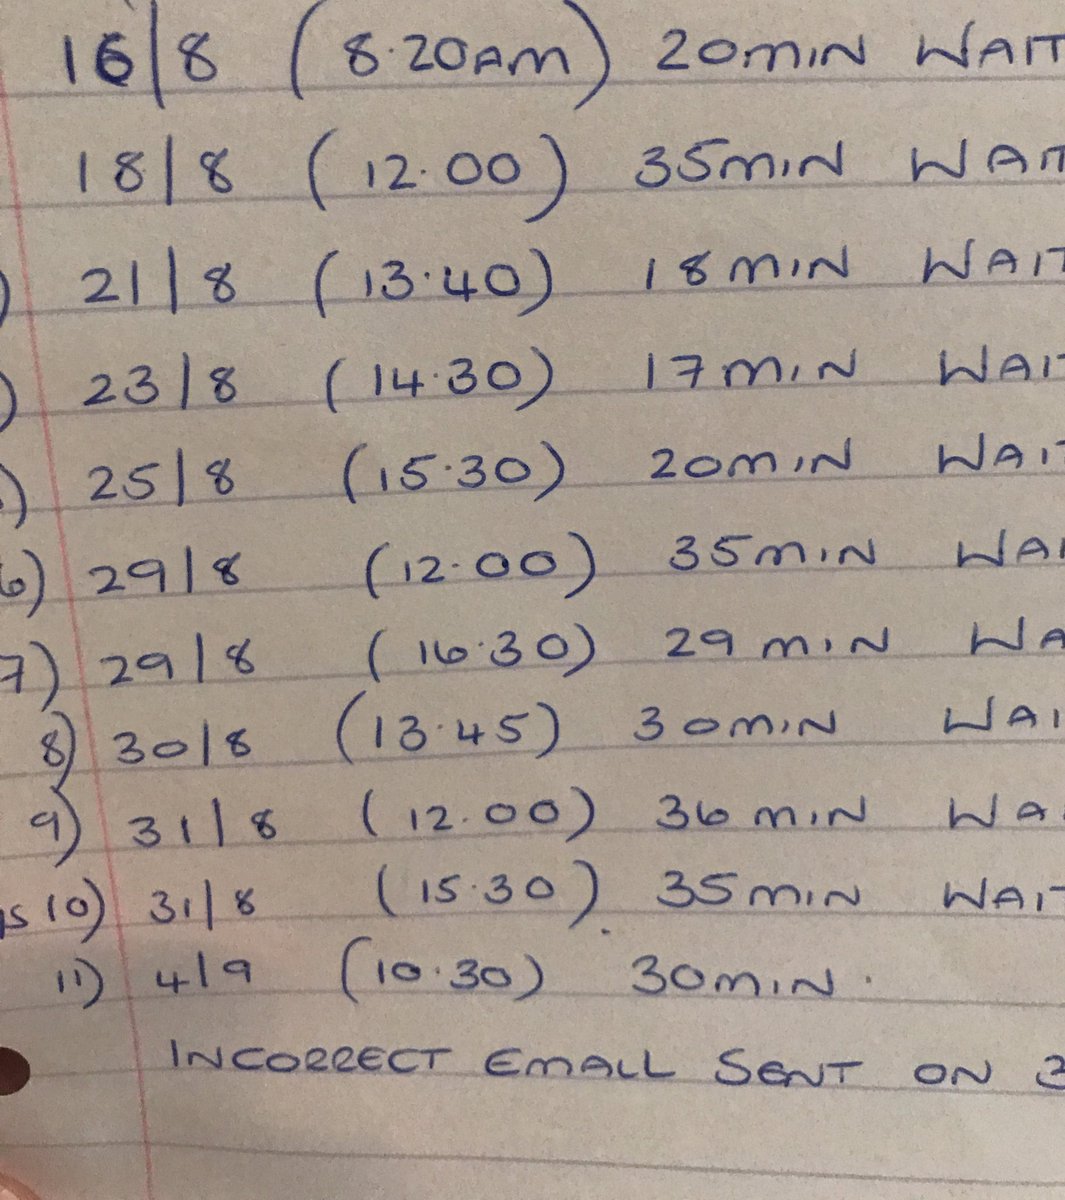 16/8 (8.20AM) 20MIN WAIT
18/8 (12.00) 35MIN WAIT
) 21/8 (13.40) 18MIN WAIT
) 23/8 (14.30) 17MIN WAIT
) 25/8 (15.30) 20MIN WAIT
6) 29/8 (12.00) 35MIN WAI
7) 29/8 (16.30) 29MIN WA
8) 30/8 (13.45) 30MIN WAI
9) 31/8 (12.00) 36MIN WA
10) 31/8 (15.30). 35MIN WAIT
11) 4/9 (10.30) 30MIN.
INCORRECT EMAIL SENT ON 3